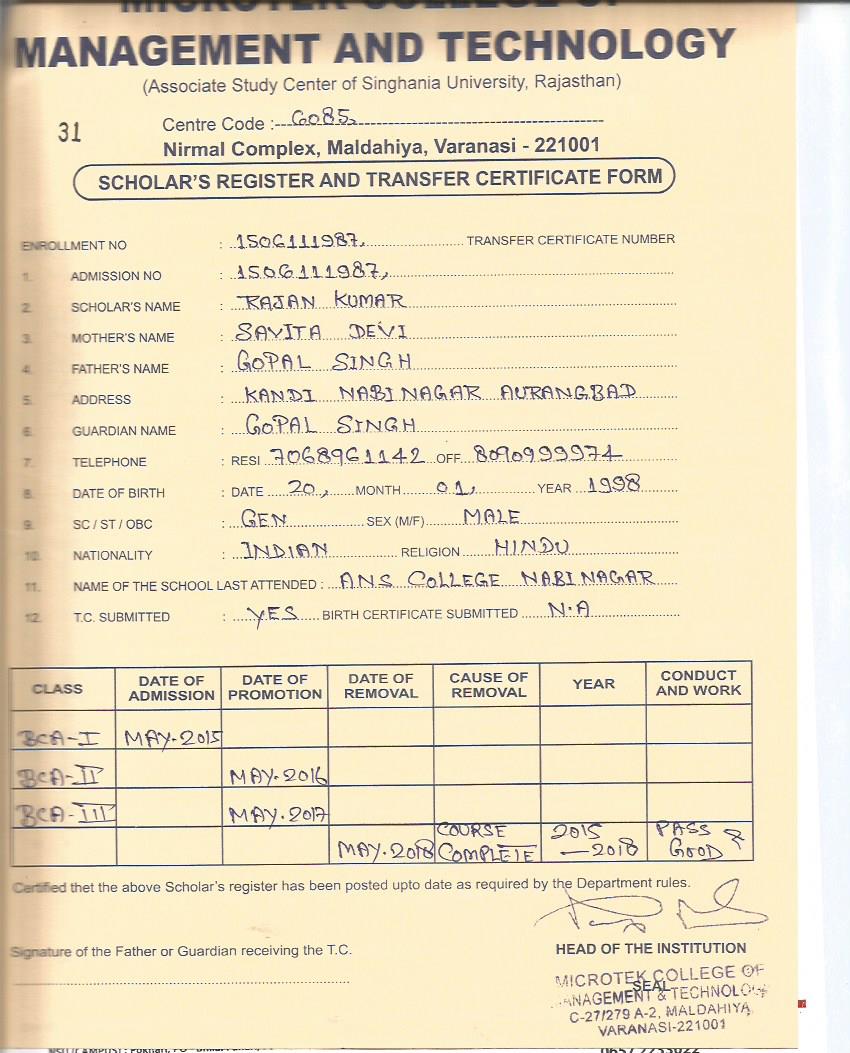 MICROTEK COLLEGE OF
MANAGEMENT AND TECHNOLOGY
(Associate Study Center of Singhania University, Rajasthan)
31
Centre Code :- G085
Nirmal Complex, Maldahiya, Varanasi - 221001
SCHOLAR'S REGISTER AND TRANSFER CERTIFICATE FORM
ENROLLMENT NO : 1506111987, TRANSFER CERTIFICATE NUMBER
1. ADMISSION NO : 1506111987,
2. SCHOLAR'S NAME : RAJAN KUMAR
3. MOTHER'S NAME : SAVITA DEVI
4. FATHER'S NAME : GOPAL SINGH
5. ADDRESS : KANDI NABINAGAR AURANGBAD
6. GUARDIAN NAME : GOPAL SINGH
7. TELEPHONE : RESI 7068961142 OFF. 8090999974
8. DATE OF BIRTH : DATE 20, MONTH 01, YEAR 1998
9. SC / ST / OBC : GEN SEX (M/F) MALE
10. NATIONALITY : INDIAN RELIGION HINDU
11. NAME OF THE SCHOOL LAST ATTENDED : ANS COLLEGE NABINAGAR
12. T.C. SUBMITTED : YES BIRTH CERTIFICATE SUBMITTED N.A
CLASS DATE OF ADMISSION DATE OF PROMOTION DATE OF REMOVAL CAUSE OF REMOVAL YEAR CONDUCT AND WORK
BCA-I MAY-2015
BCA-II MAY-2016
BCA-III MAY-2017
MAY-2018 COURSE COMPLETE 2015 -2018 PASS & GOOD
Certified thet the above Scholar's register has been posted upto date as required by the Department rules.
Signature of the Father or Guardian receiving the T.C.
HEAD OF THE INSTITUTION
SEAL
MICROTEK COLLEGE OF
MANAGEMENT & TECHNOLOGY
C-27/279 A-2, MALDAHIYA,
VARANASI-221001